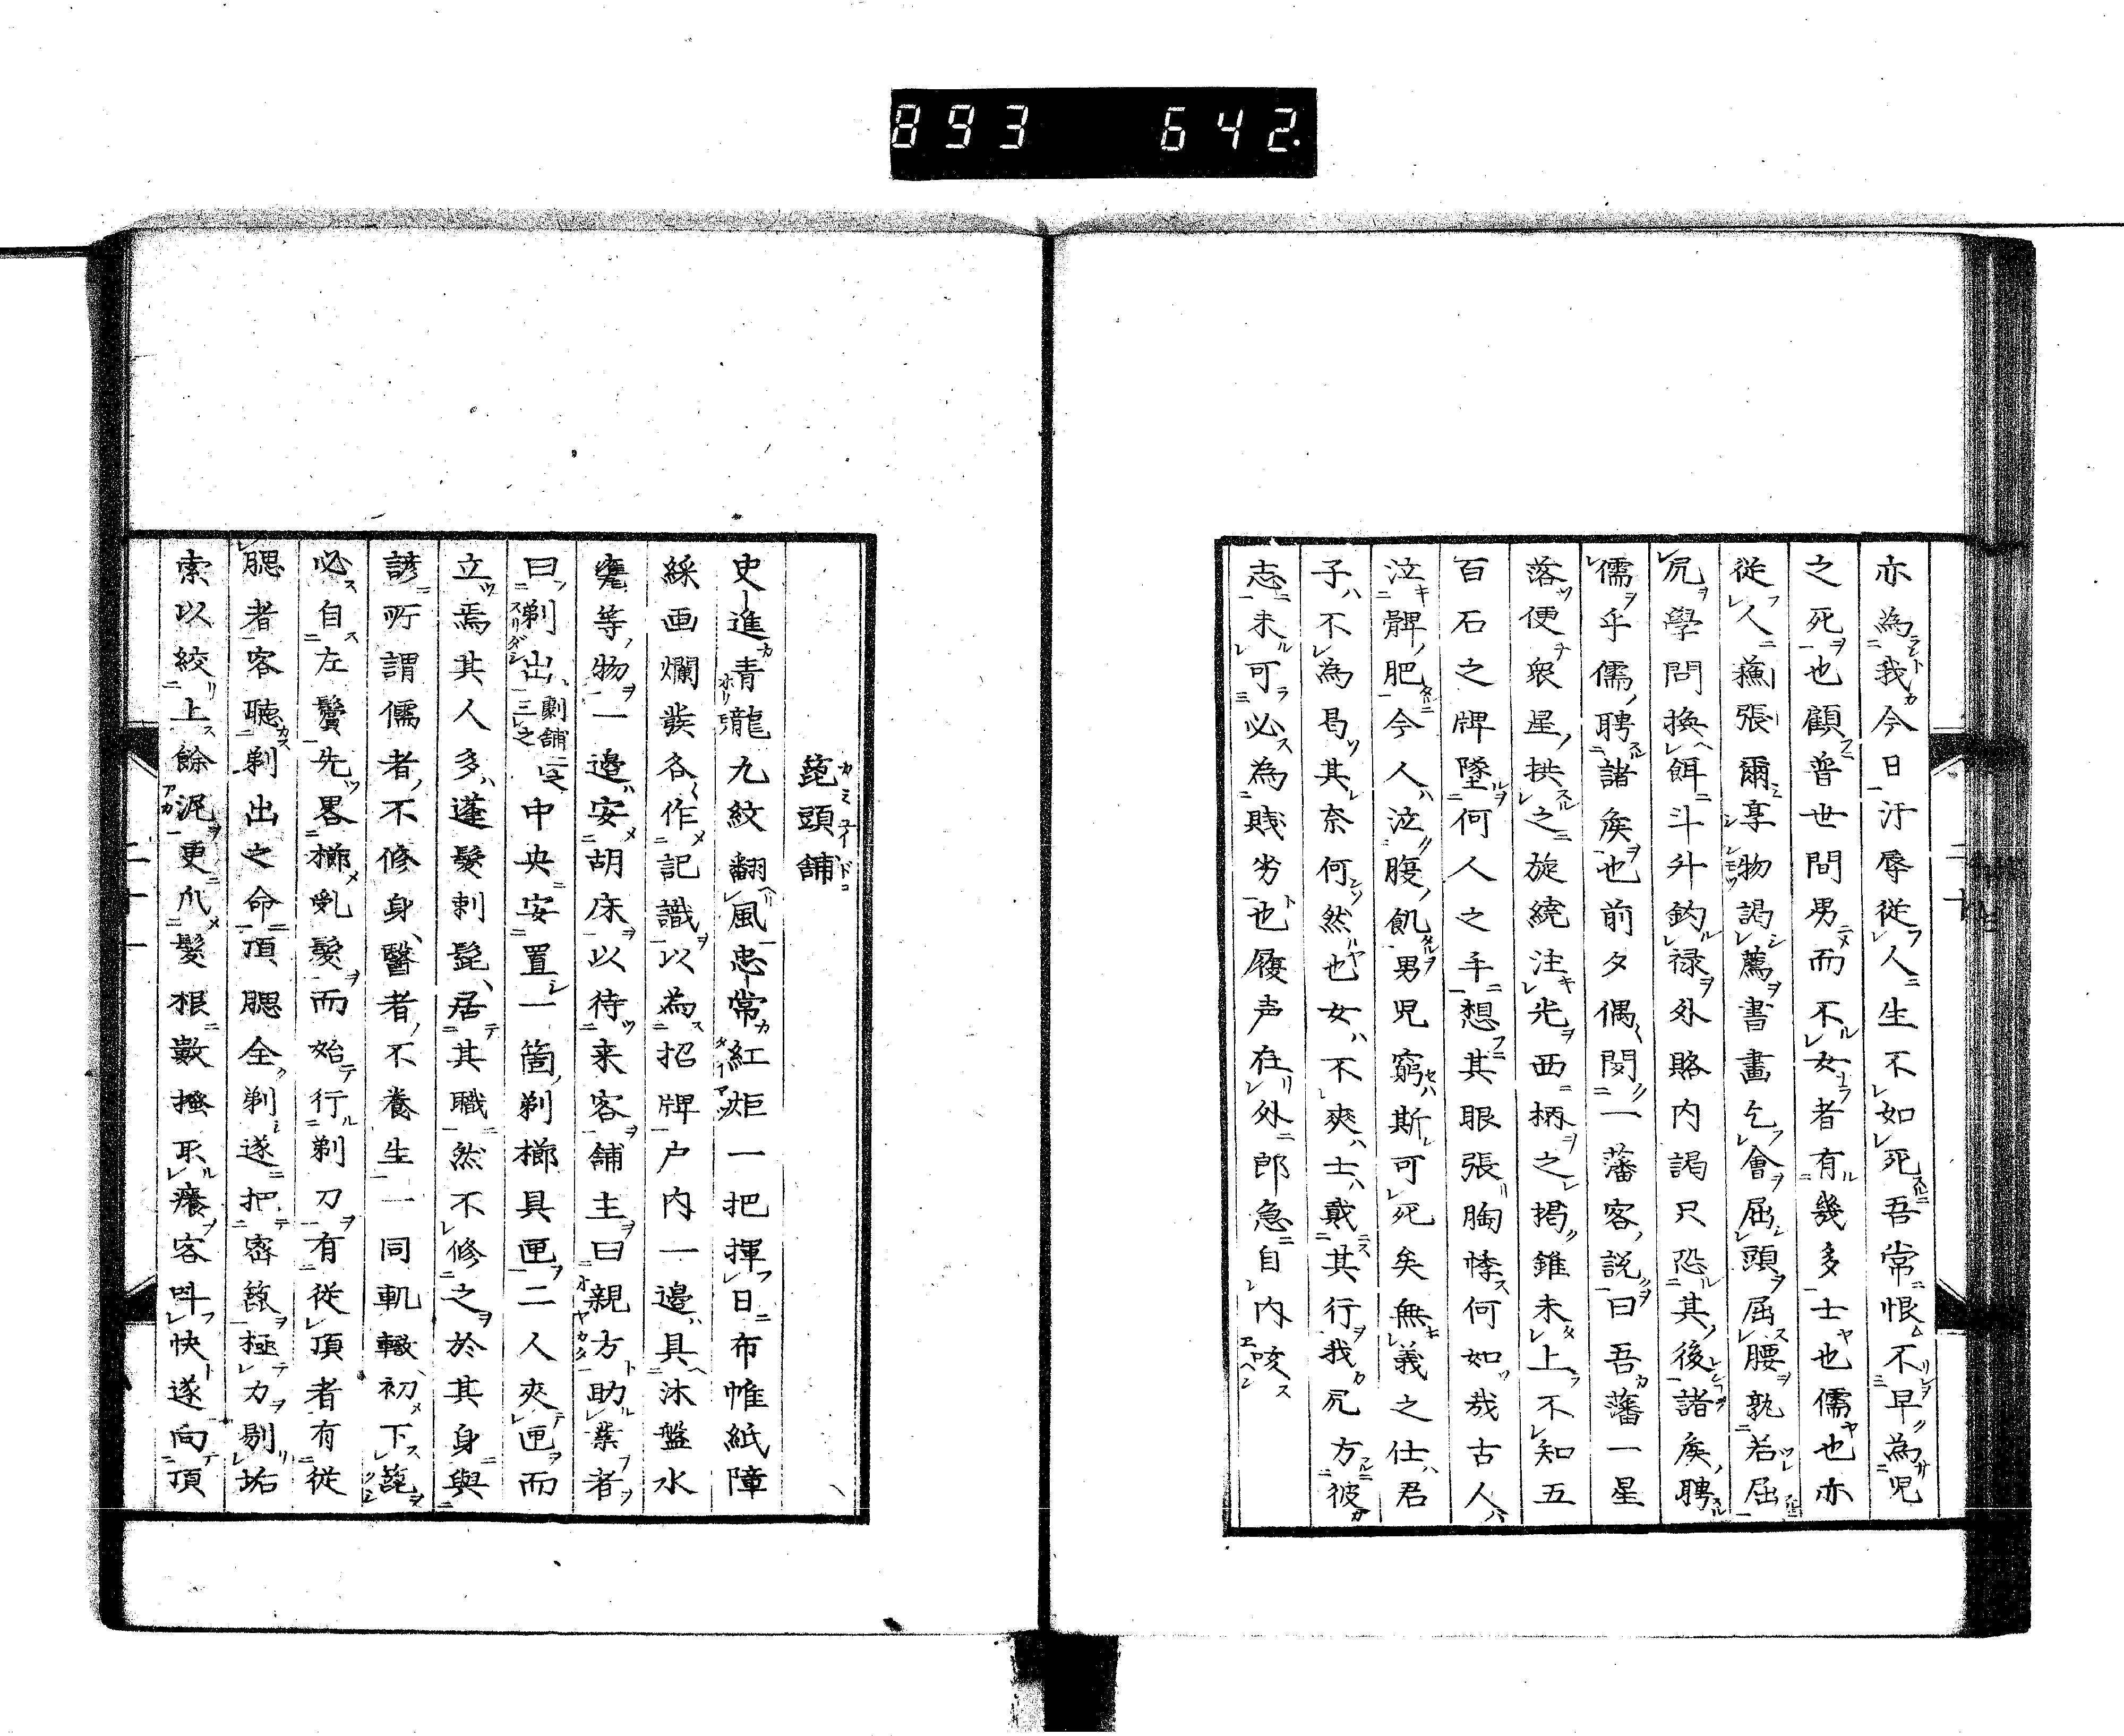 893 642.
亦為我今日汙辱從人生不如死吾常恨不早為児
之死也顧普世間男而不女者有幾多士也儒也亦
從人蘓張爾享物謁薦書畫乞會屈頭屈腰孰若屈
尻學問換餌斗升鈎禄外賂内謁只恐其後諸矦聘
儒乎儒聘諸矦也前夕偶閔一藩客説曰吾藩一星
落便衆星拱之旋繞注光西柄之掲錐未上不知五
百石之牌墜何人之手想其眼張胸悸何如哉古人
泣髀肥今人泣腹飢男児窮斯可死矣無義之仕君
子不為曷其奈何然也女不爽士戴其行我尻方彼
志未可必為賎劣也履声在外郎急自内咳
二十
篦頭舗
史進青龍九紋翻風忠常紅炬一把揮日布帷紙障
綵画爛發各作記識以為招牌戸内一邉具沐盤水
甕等物一邉安胡床以待来客舗主曰親方助業者
曰剃出劇舗亦三之中央安置一箇剃櫛具匣二人夾匣而
立焉其人多蓬髮刺髭居其職然不修之於其身與
諺所謂儒者不修身醫者不養生一同軌轍初下篦
必自左鬢先畧櫛乱髮而始行剃刀有從頂者有從
腮者客聽剃出之命頂腮全剃遂把齋篦極力剔垢
索以絞上餘泥更爪髮根數搔取癢客呌快遂向頂
二十一